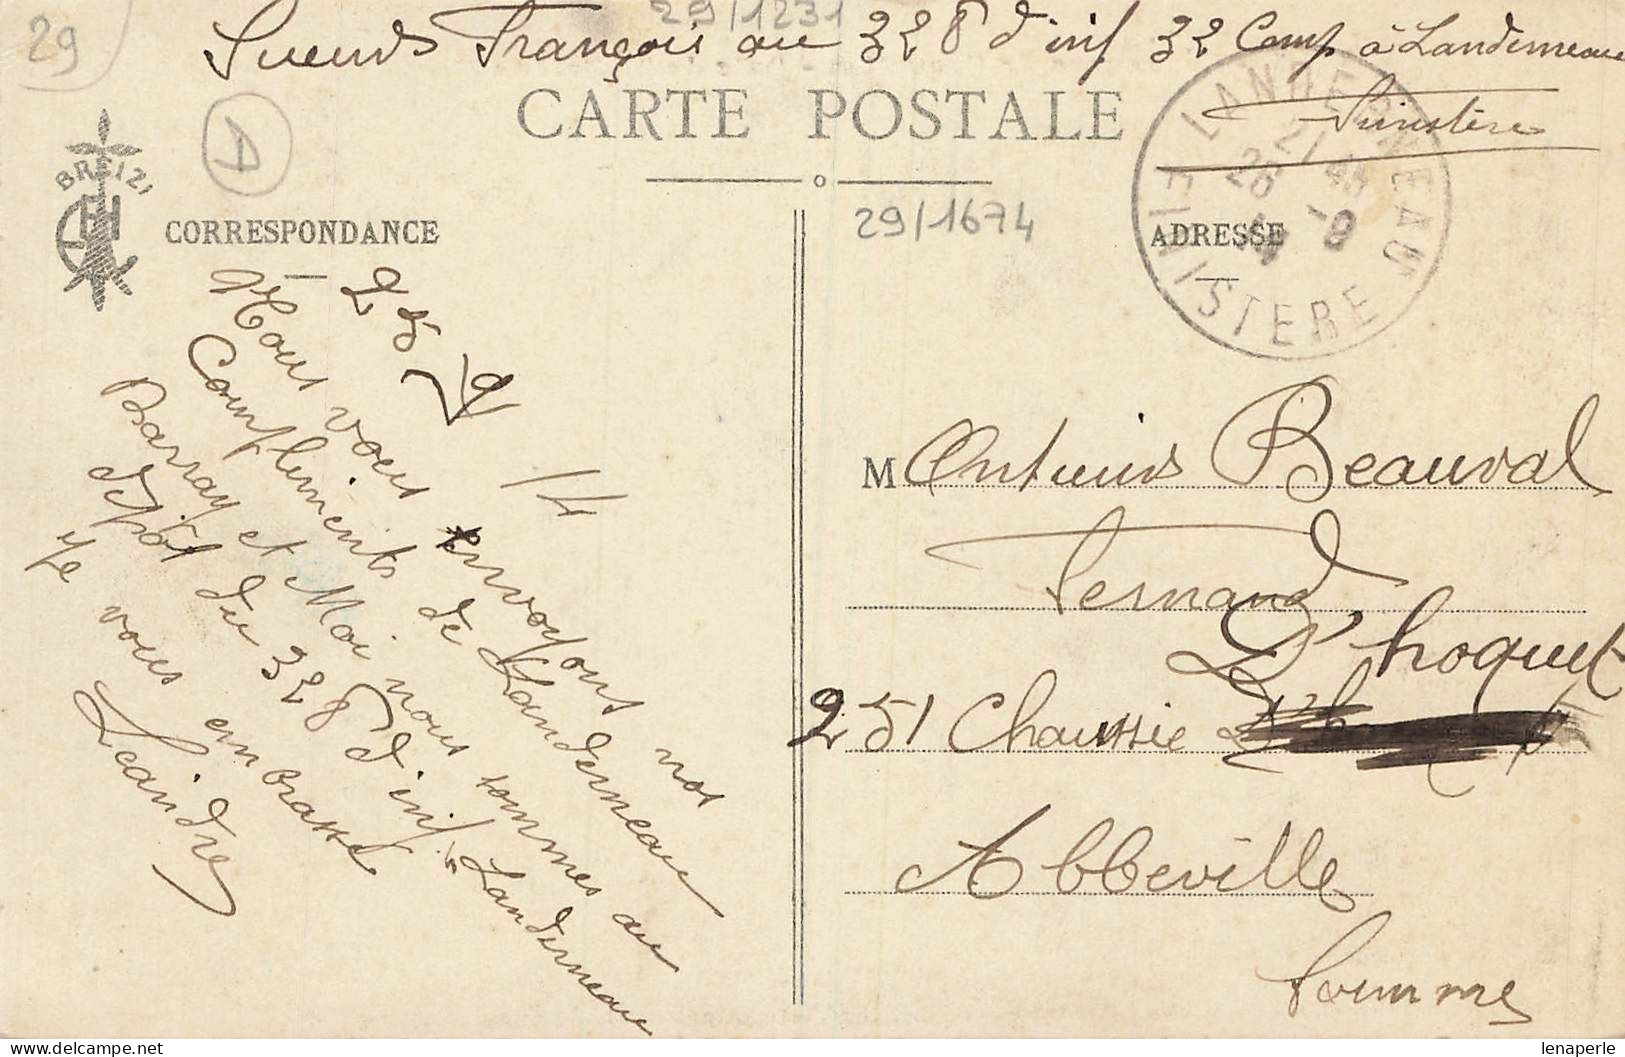 29
29/1231
François au 328 d'inf 32 Comp à Landerneau
Finistère
CARTE POSTALE
D
BREIZ
CORRESPONDANCE
29/1674
ADRESSE
LANDERNEAU
21 45
26 -9
14
FINISTERE
25 9 14
Nous vous envoyons nos
Compliments de Landerneau
Barray et Moi nous sommes au
dépôt du 328 d'inf Landerneau
Je vous embrasse
Léandre
M Beauval
Fernand
D'hoquet
251 Chaussée
Abbeville
Somme
lenaperle